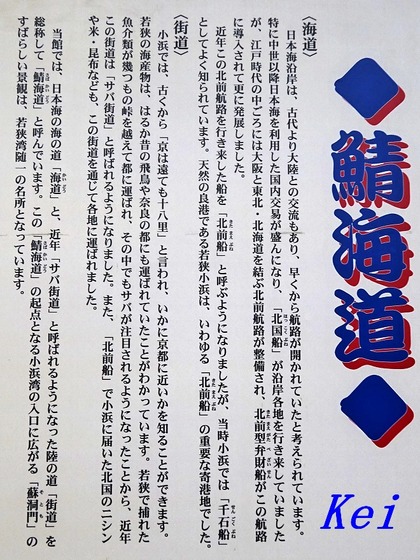 鯖海道
〈海道〉
日本海沿岸は、古代より大陸との交流もあり、早くから航路が開かれていたと考えられています。
特に中世以降日本海を利用した国内交易が盛んになり、「北国船」が沿岸各地を行き来していました
が、江戸時代の中ごろには大阪と東北・北海道を結ぶ北前航路が整備され、北前型弁財船がこの航路
に導入されて更に発展しました。
近年この北前航路を行き来した船を「北前船」と呼ぶようになりましたが、当時小浜では「千石船」
としてよく知られています。天然の良港である若狭小浜は、いわゆる「北前船」の重要な寄港地でした。
〈街道〉
小浜では、古くから「京は遠ても十八里」と言われ、いかに京都に近いかを知ることができます。
若狭の海産物は、はるか昔の飛鳥や奈良の都にも運ばれていたことがわかっています。若狭で捕れた
魚介類が幾つもの峠を越えて都に運ばれ、その中でもサバが注目されるようになったことから、近年
この街道は「サバ街道」と呼ばれるようになりました。また、「北前船」で小浜に届いた北国のニシン
や米・昆布なども、この街道を通じて各地に運ばれました。
当館では、日本海の海の道「海道」と、近年「サバ街道」と呼ばれるようになった陸の道「街道」を
総称して「鯖海道」と呼んでいます。この「鯖海道」の起点となる小浜湾の入口に広がる「蘇洞門」の
すばらしい景観は、若狭湾随一の名所となっています。
Kei